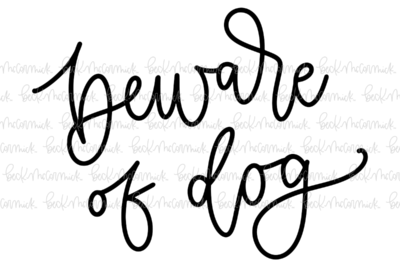 beware
of dog